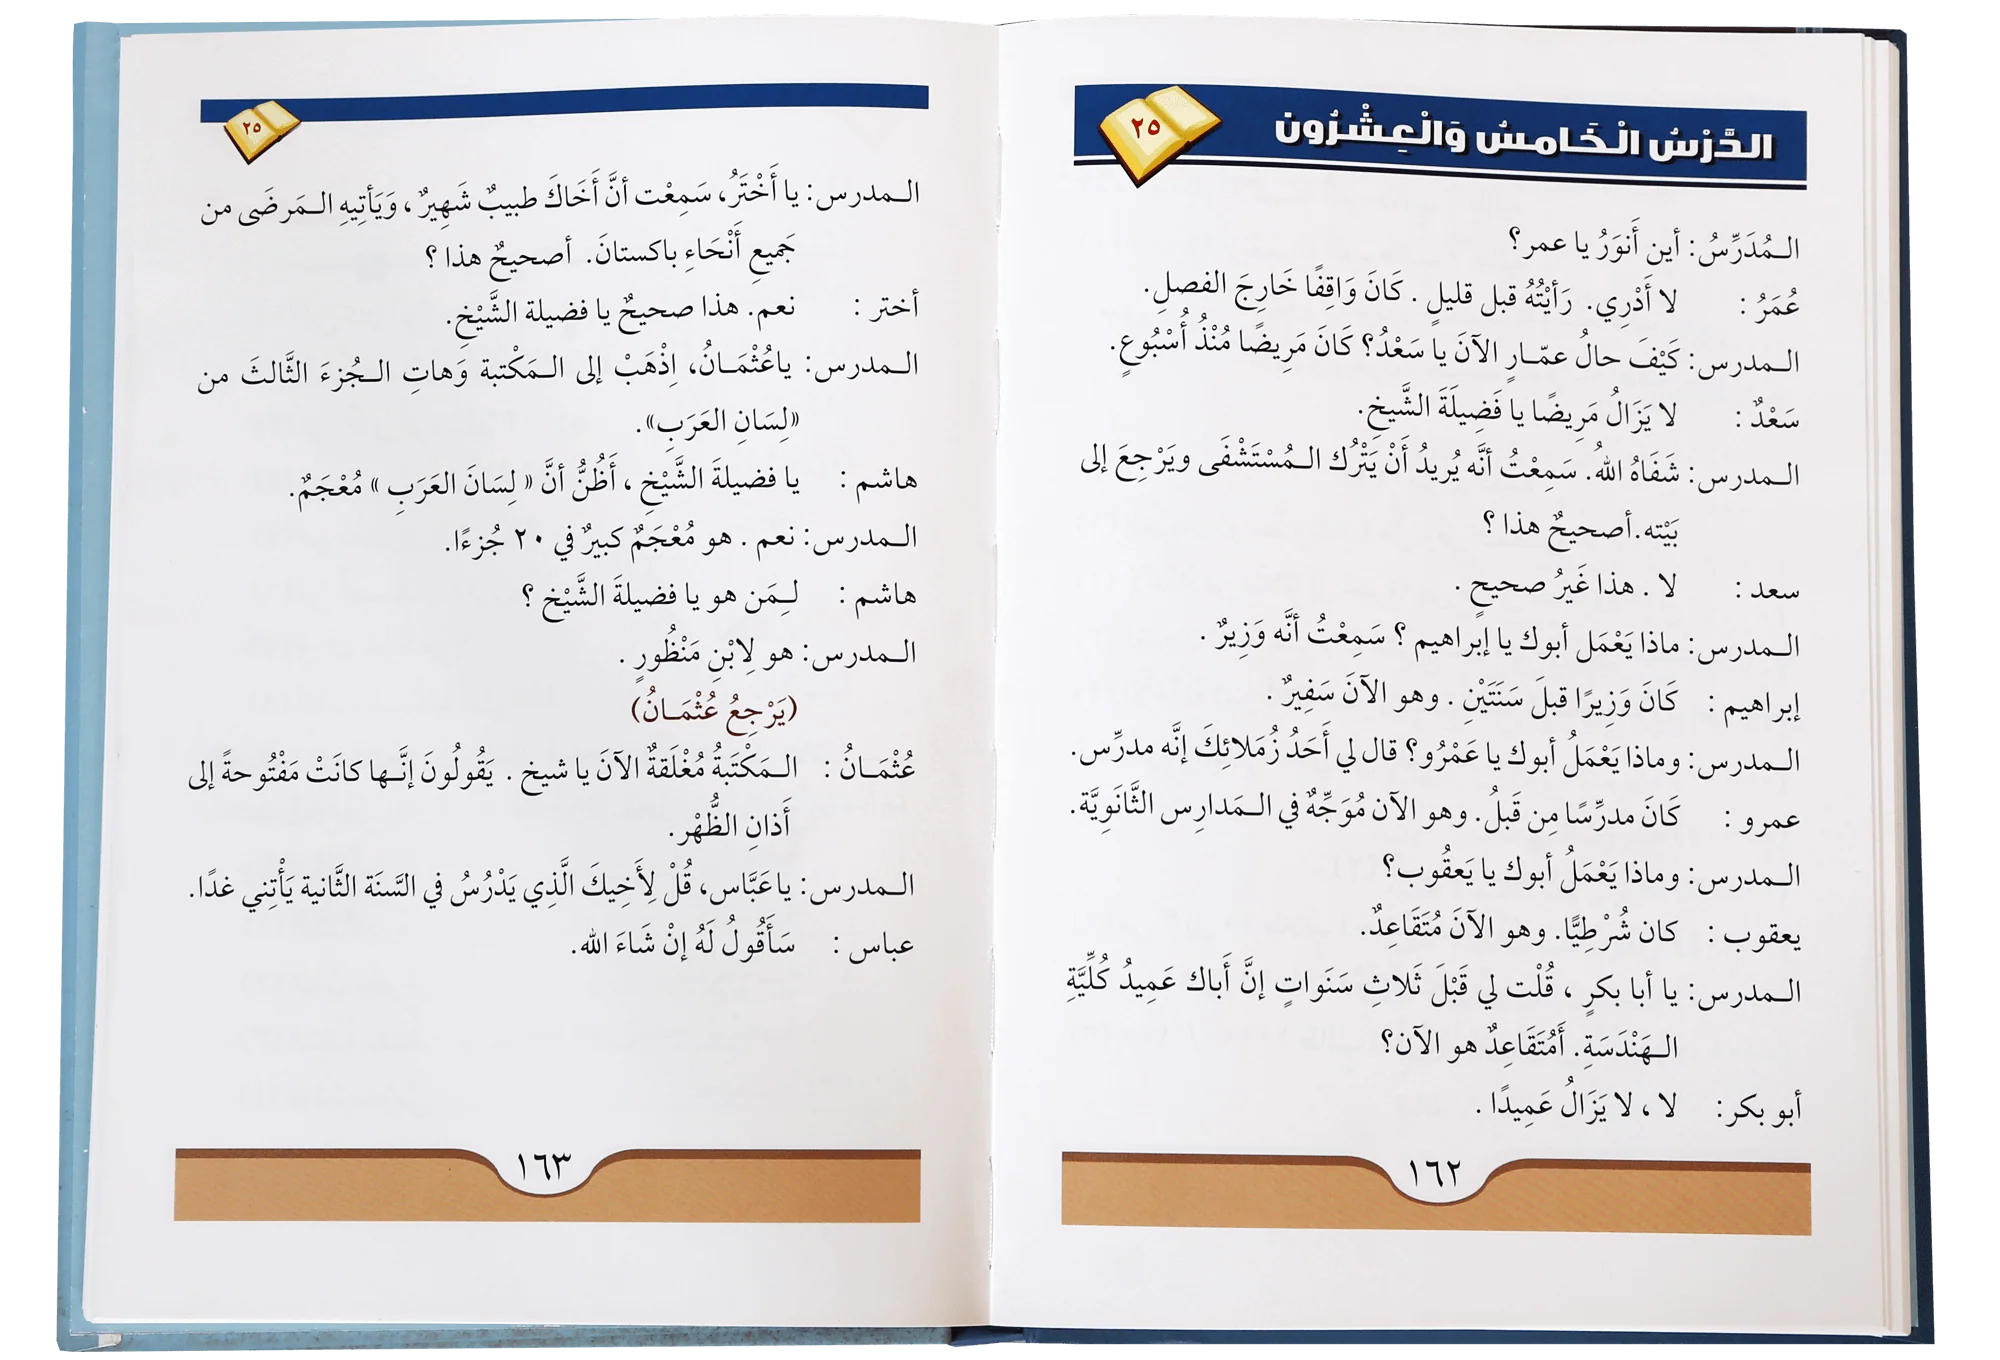 الدَّرْسُ الْخَامسُ وَالْعِشْرُون
٢٥
الـمُدَرِّسُ: أين أَنوَرُ يا عمر؟
عُمَرُ : لا أَدْرِي. رَأيْتُهُ قبل قليلٍ . كَانَ وَاقِفًا خَارِجَ الفصلِ.
الـمدرس: كَيْفَ حالُ عمّـارٍ الآنَ يا سَعْدُ؟ كَانَ مَرِيضًا مُنْذُ أُسْبُوعٍ.
سَعْدٌ : لا يَزَالُ مَرِيضًا يا فَضِيلَةَ الشَّيخِ.
الـمدرس: شَفَاهُ اللهُ. سَمِعْتُ أنَّه يُريدُ أَنْ يَتْرُك الـمُسْتَشْفَى ويَرْجِعَ إلى
بَيْته.أصحيحٌ هذا ؟
سعد : لا . هذا غَيرُ صحيحٍ .
الـمدرس: ماذا يَعْمَل أبوك يا إبراهيم ؟ سَمِعْتُ أنَّه وَزِيرٌ .
إبراهيم : كَانَ وَزِيرًا قبلَ سَنَتَيْنِ . وهو الآنَ سَفِيرٌ .
الـمدرس: وماذا يَعْمَلُ أبوك يا عَمْرُو؟ قال لي أَحَدُ زُمَلائِكَ إنَّه مدرِّس.
عمرو : كَانَ مدرِّسًا مِن قَبلُ. وهو الآن مُوَجِّهٌ في الـمَدارِس الثَّانَوِيَّة.
الـمدرس: وماذا يَعْمَلُ أبوك يا يَعقُوب؟
يعقوب : كان شُرْطِيًّا. وهو الآنَ مُتَقَاعِدٌ.
الـمدرس: يا أبا بكرٍ ، قُلْت لي قَبْلَ ثَلاثِ سَنَواتٍ إنَّ أَباك عَمِيدُ كُلِّيَّةِ
الـهَنْدَسَةِ. أَمُتَقَاعِدٌ هو الآن؟
أبو بكر: لا ، لا يَزَالُ عَمِيدًا .
١٦٢
٢٥
الـمدرس: يا أَخْتَرُ، سَمِعْت أنَّ أَخَاكَ طبيبٌ شَهِيرٌ ، وَيَأتِيهِ الـمَرضَى من
جَمِيعِ أَنْحَاءِ باكستانَ. أصحيحٌ هذا ؟
أختر : نعم. هذا صحيحٌ يا فضيلة الشَّيْخِ.
الـمدرس: ياعُثْمَـانُ، اِذْهَبْ إلى الـمَكْتبة وَهاتِ الـجُزءَ الثَّالثَ من
«لِسَانِ العَرَبِ».
هاشم : يا فضيلةَ الشَّيْخِ ، أَظُنُّ أنَّ « لِسَانَ العَرَبِ » مُعْجَمٌ.
الـمدرس: نعم . هو مُعْجَمٌ كبيرٌ في ٢٠ جُزءًا.
هاشم : لـِمَن هو يا فضيلةَ الشَّيْخ ؟
الـمدرس: هو لِابْنِ مَنْظُورٍ .
(يَرْجِعُ عُثْمَـانُ)
عُثْمَـانُ : الـمَكْتَبةُ مُغْلَقةٌ الآنَ يا شيخ . يَقُولُونَ إنَّـها كانَتْ مَفْتُوحةً إلى
أَذانِ الظُّهْر.
الـمدرس: ياعَبَّاس، قُلْ لِأَخِيكَ الَّذِي يَدْرُسُ في السَّنَة الثَّانية يَأْتِني غدًا.
عباس : سَأَقُولُ لَهُ إنْ شَاءَ الله.
١٦٣